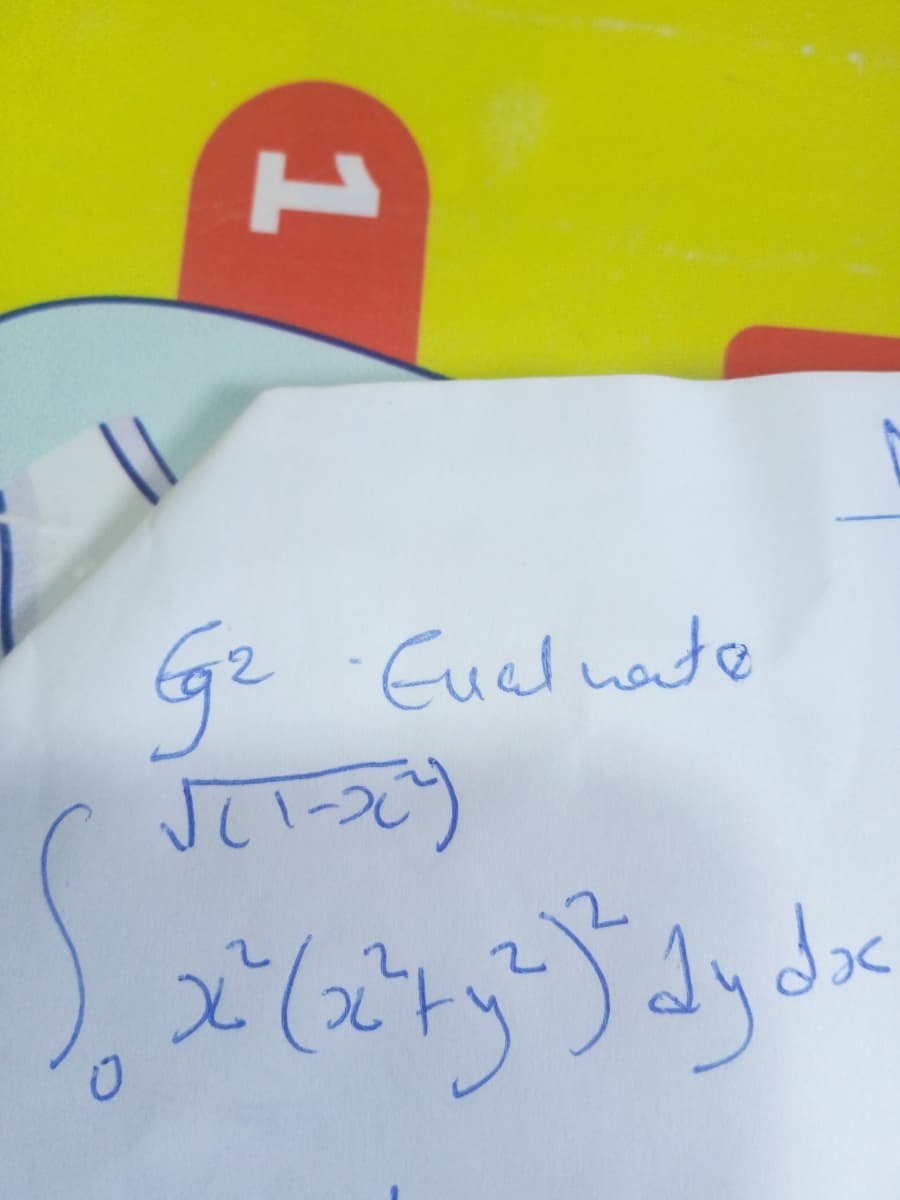 1
Eg2 . Evaluate
√(1-x²)
∫ x²(x²+y²)² dy dx
0